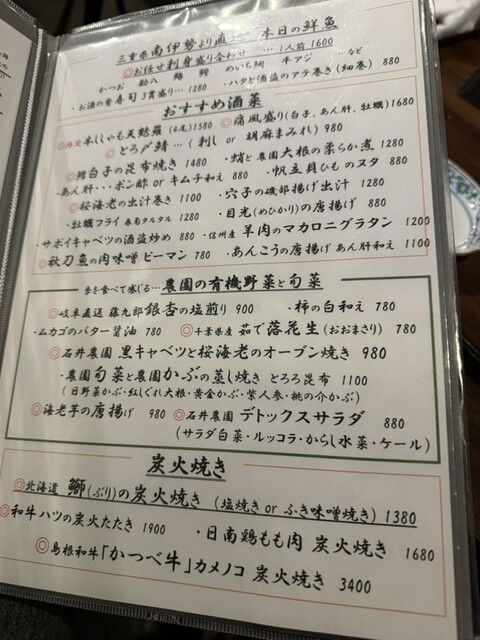 三重県南伊勢より直送 本日の鮮魚
◎お任せ刺身盛り合わせ… 1人前 1600
かつお 助八 鯛 鯵 めいち鯛 平アジ …など
・お酒の肴寿司 3貫盛り… 1280 ・ハタと酒盗のアテ巻き(細巻) 880
おすすめ酒菜
本ししゃも天麩羅(4尾) 1580 ◎痛風盛り(白子、あん肝、牡蠣) 1680
◎とろ〆鯖…(刺し or 胡麻まみれ) 980
◎鱈白子の昆布焼き 1480 ・蛸と農園大根の柔らか煮 1280
・あん肝・・・ポン酢 or キムチ和え 880 ・帆立貝ひものヌタ 880
◎桜海老の出汁巻き 1100 ・穴子の磯部揚げ出汁 1280
・牡蠣フライ 春菊タルタル 1280 ・目光(めひかり)の唐揚げ 880
・サボイキャベツの酒盗炒め 880 ・信州産 羊肉のマカロニグラタン 1200
◎秋刀魚の肉味噌ピーマン 780 ・あんこうの唐揚げ あん肝和え 1100
季を食べて感じる… 農園の有機野菜と旬菜
◎岐阜直送 藤九郎銀杏の塩煎り 900 ・柿の白和え 780
・ムカゴのバター醤油 780 ◎千葉県産 茹で落花生(おおまさり) 780
◎石井農園 黒キャベツと桜海老のオーブン焼き 980
・農園旬菜と農園かぶの蒸し焼き とろろ昆布 1100
(日野菜かぶ・紅しぐれ大根・黄金かぶ・紫人参・桃の介かぶ)
◎海老芋の唐揚げ 980 ◎石井農園 デトックスサラダ 880
(サラダ白菜・ルッコラ・からし水菜・ケール)
炭火焼き
◎北海道 鰤(ぶり)の炭火焼き (塩焼き or ふき味噌焼き) 1380
◎和牛ハツの炭火たたき 1900 ・日南鶏もも肉 炭火焼き 1680
◎島根和牛「かつべ牛」カメノコ 炭火焼き 3400